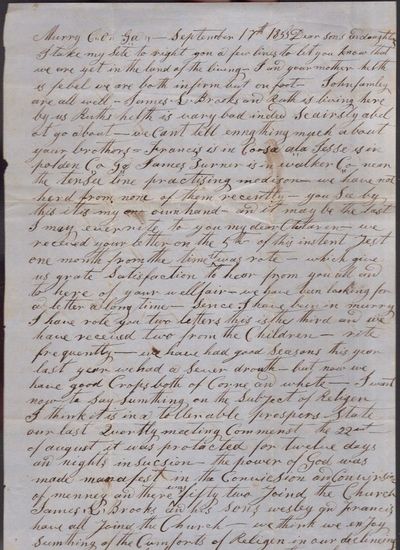 Murry Co Ga — September 17th 1855 Dear sons & daughters
I take my site to right you a few lines to let you know that
we are yet in the land of the living — I and your mother helth
is febel we are both infirm but on foot — John famley
are all well — James L Brooks an Ruth is living here
by us Ruths helth is vary bad inded Scairsly abel
ot go about — we Can't tell ennything much about
your brothers — Francis is in Coosa ala Jesse is in
polden Co Ga James Turner is in walker Co near
the tensee line practising madison — we have not
herd from none of them recently — you See by
this it is my own hand — an it may be the last
I may ever rite to you my dear Children — we
received your letter on the 5th of this instent Jest
one month from the time it was rote — which give
us grate Satisfaction to hear from you all and
to here of your wellfair — we have ben looking for
a letter a long time — Sence I have ben in murry
I have rote you two letters this is the third and we
have received two from the Children — rite
frequently — we have had good Seasons this year
last year we had a Sever drouth — but now we
have good Crops both of Corne and whete — I want
now to Say Sumthing on the Subject of Religen
I think it is in a tollerable prospers State
our last Quortly meeting Commenst the 22nd
of august it was protacted for twelve days
an nights in sucsion — the power of God was
made manafest in the Convicion an Convirsion
of menney an there was fifty two Joind the Church
James L Brooks an his sons wesley an francis
have all Joind the Church — we think we enjoy
Sumthing of the Cumforts of Religen in our declining